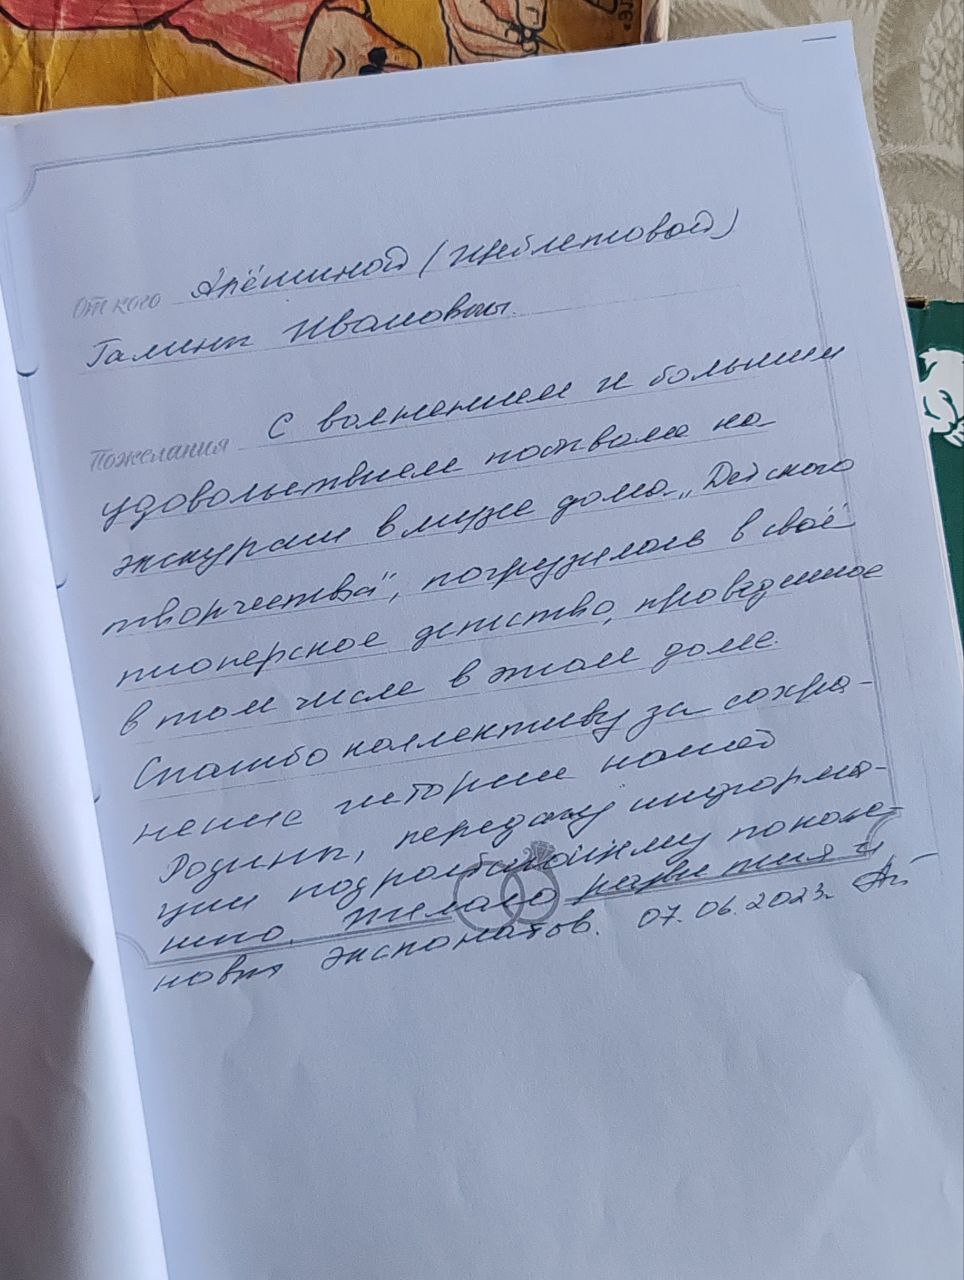 От кого Арёшиной (
Галины Ивановны.
Пожелания С волнением и большим
удовольствием побывала на
экскурсии в музее дома „Детского
творчества", погрузилась в своё
пионерское детство, проведенное
в том числе в этом доме.
Спасибо коллективу за сохра-
нение истории нашей
Родины, передачу информа-
ции подрастающему поколе-
нию. Желаю развития и
новых экспонатов. 07.06.2023г.